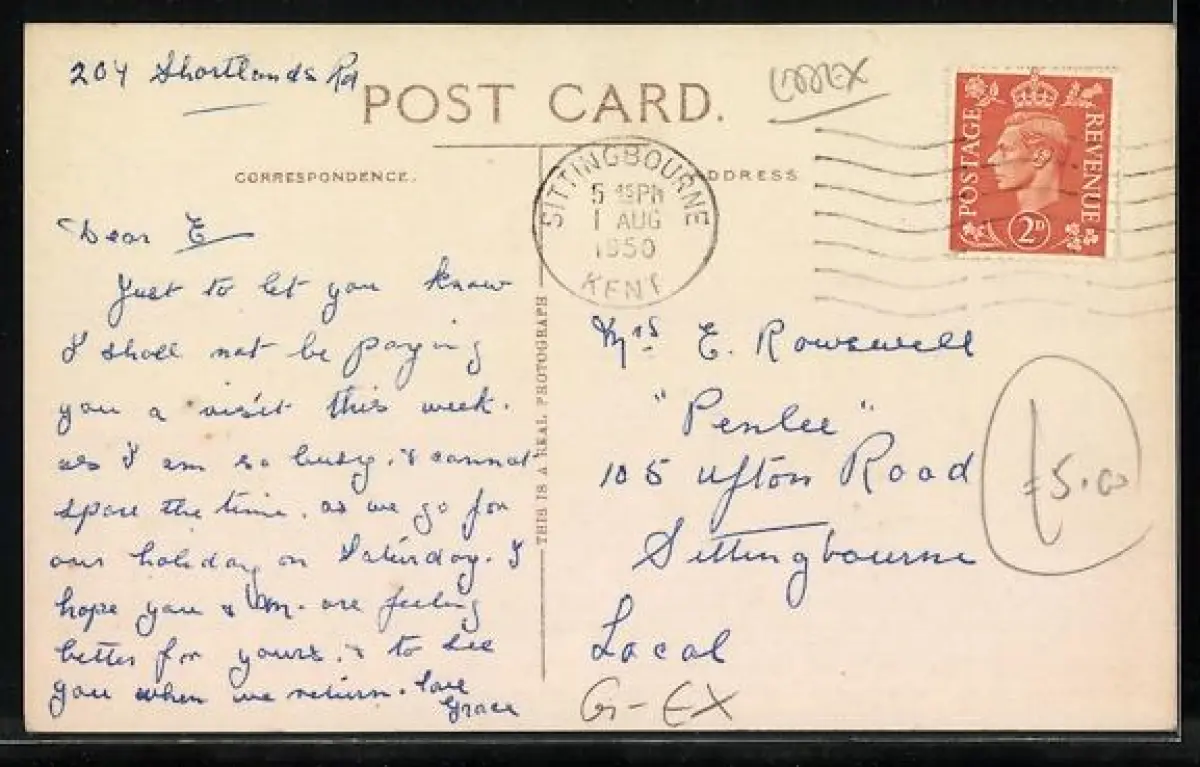 204 Shortlands Rd
POST CARD.
CORRESPONDENCE.
ADDRESS
SITTINGBOURNE
5 45 PM
1 AUG
1950
KENT
POSTAGE
REVENUE
2D
Dear E
Just to let you know
I shall not be paying
you a visit this week.
as I am so busy, & cannot
spare the time, as we go for
our holiday on Saturday. I
hope you & M. are feeling
better for yours, & to see
you when we return. Love
Grace
THIS IS A REAL PHOTOGRAPH
Mrs E. Rowswell
"Penlee"
105 Ufton Road
Sittingbourne
Local
G-EX
5.00